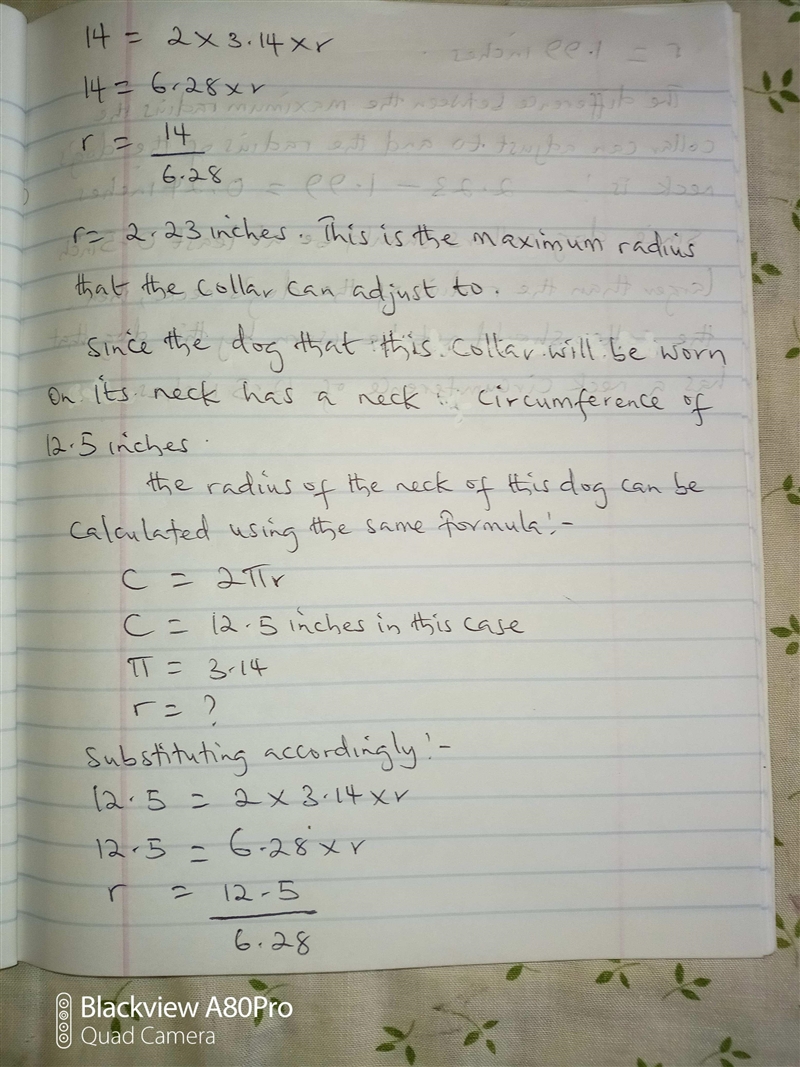 14 = 2 x 3.14 x r
14 = 6.28 x r
r = 14
6.28
r = 2.23 inches. This is the maximum radius
that the collar can adjust to.
Since the dog that this collar will be worn
on its neck has a neck circumference of
12.5 inches.
the radius of the neck of this dog can be
calculated using the same formula:-
C = 2πr
C = 12.5 inches in this case
π = 3.14
r = ?
Substituting accordingly:-
12.5 = 2 x 3.14 x r
12.5 = 6.28 x r
r = 12.5
6.28
Blackview A80Pro
Quad Camera